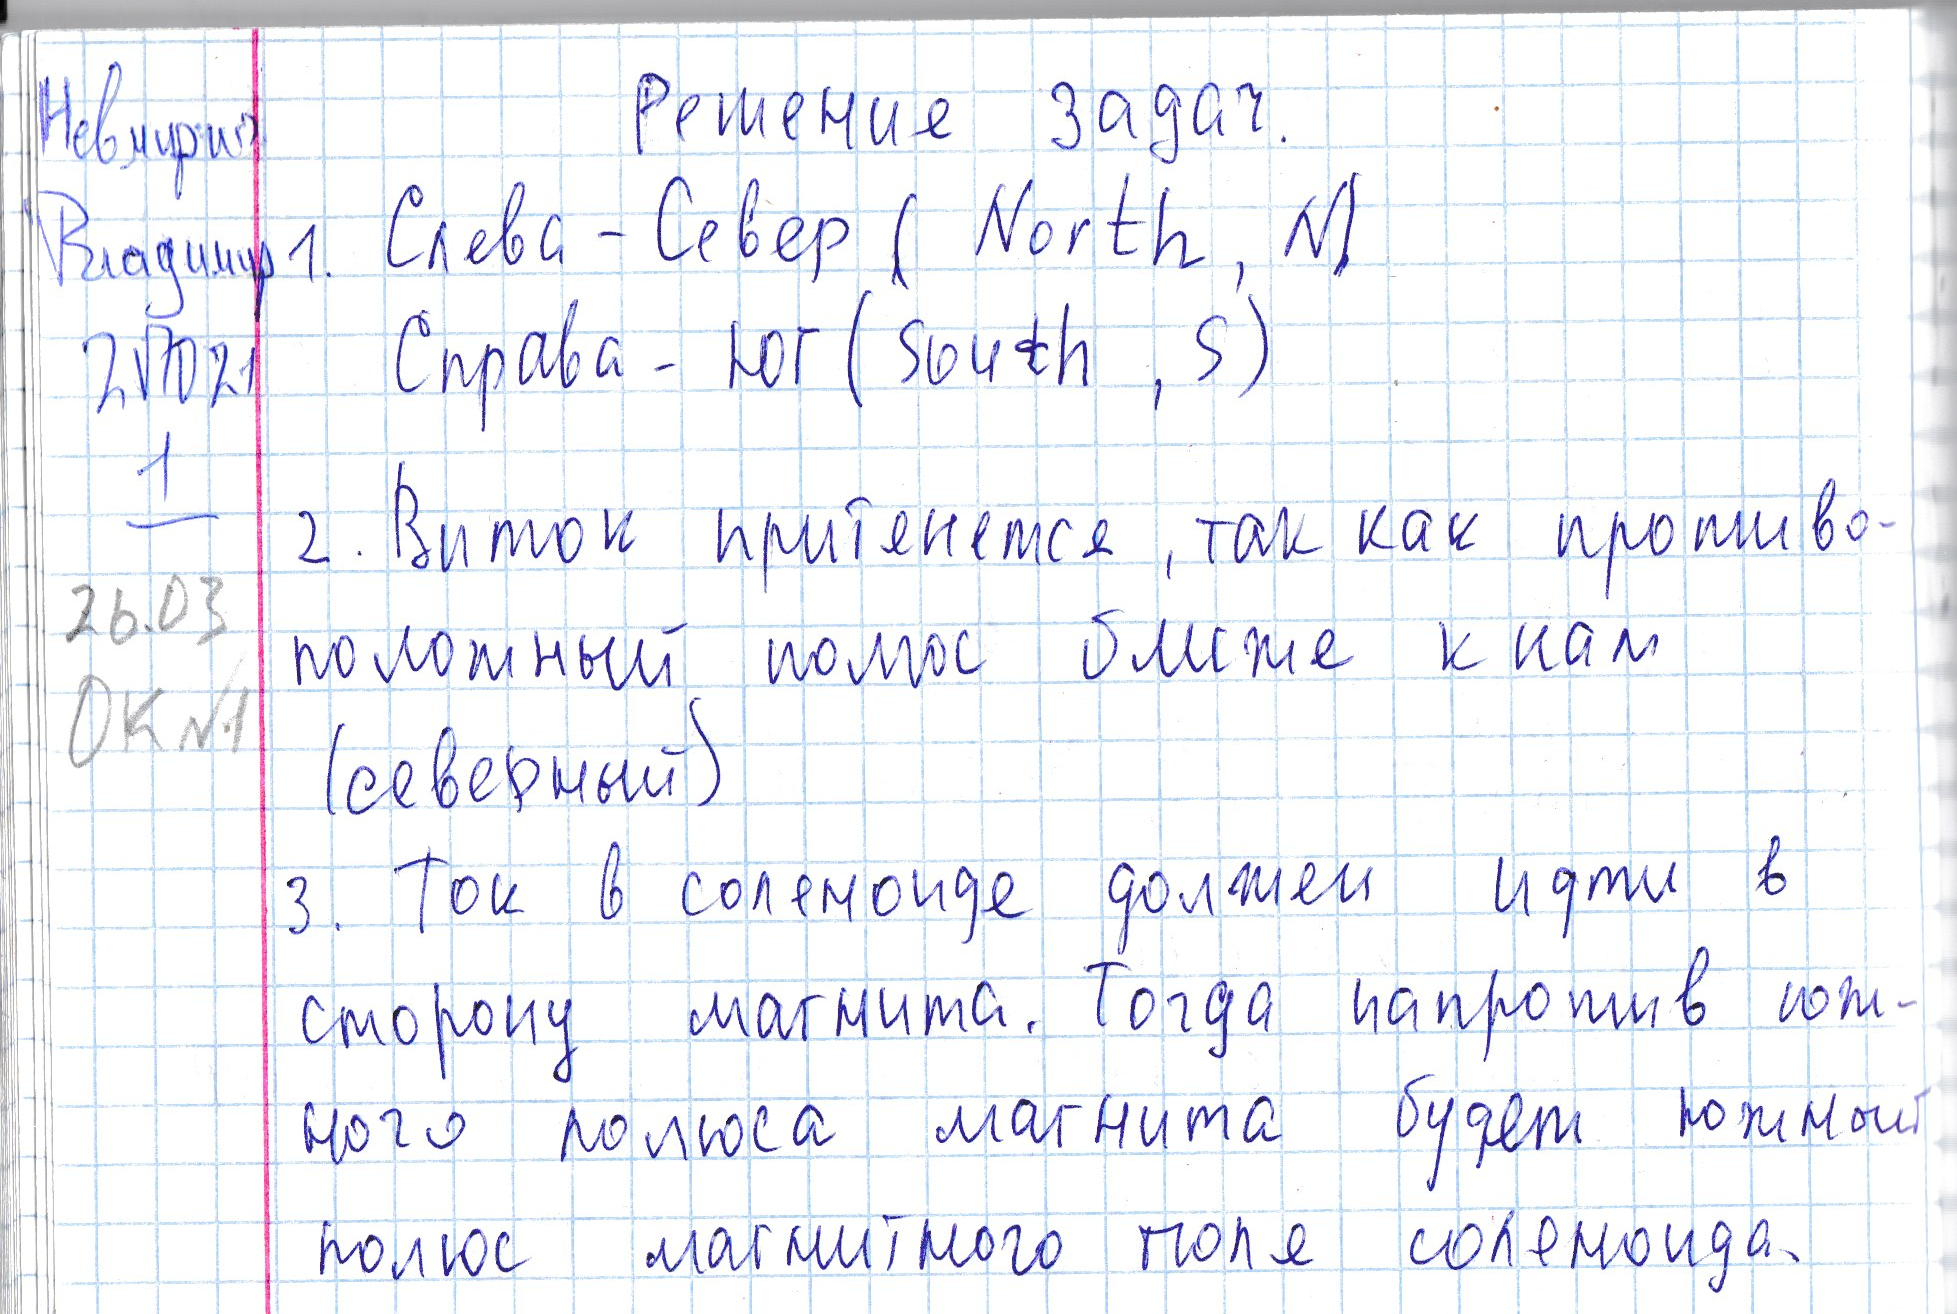 Решение задач.
Владимир
1. Слева - Север ( North, N)
Справа - Юг (South, S)
1
2. Виток притянется, так как противо-
положный полюс ближе к нам
(северный)
26.03
ОК №1
3. Ток в соленоиде должен идти в
сторону магнита. Тогда напротив юж-
ного полюса магнита будет южный
полюс магнитного поля соленоида.